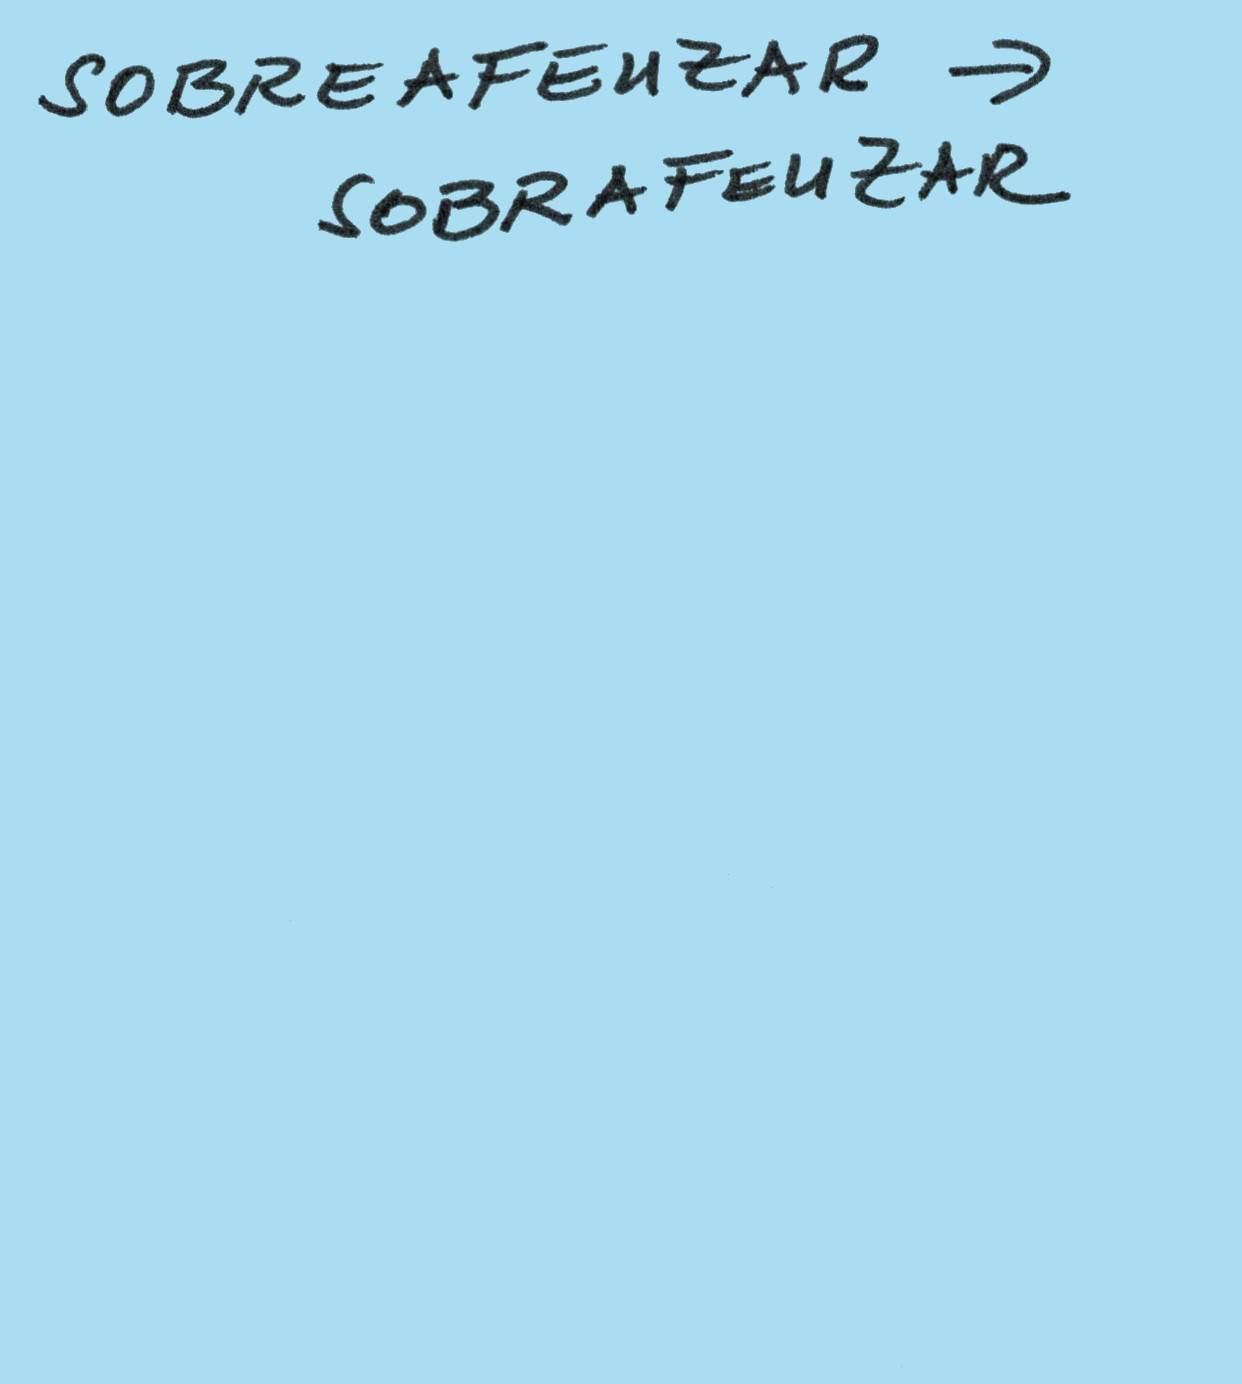 SOBREAFEUZAR →
SOBRAFEUZAR